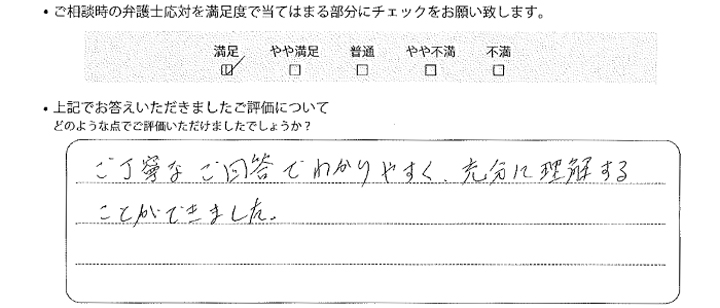 ・ご相談時の弁護士応対を満足度で当てはまる部分にチェックをお願い致します。
満足 やや満足 普通 やや不満 不満
☑ □ □ □ □
・上記でお答えいただきましたご評価について
どのような点でご評価いただけましたでしょうか？
ご丁寧なご回答でわかりやすく、充分に理解する
ことができました。